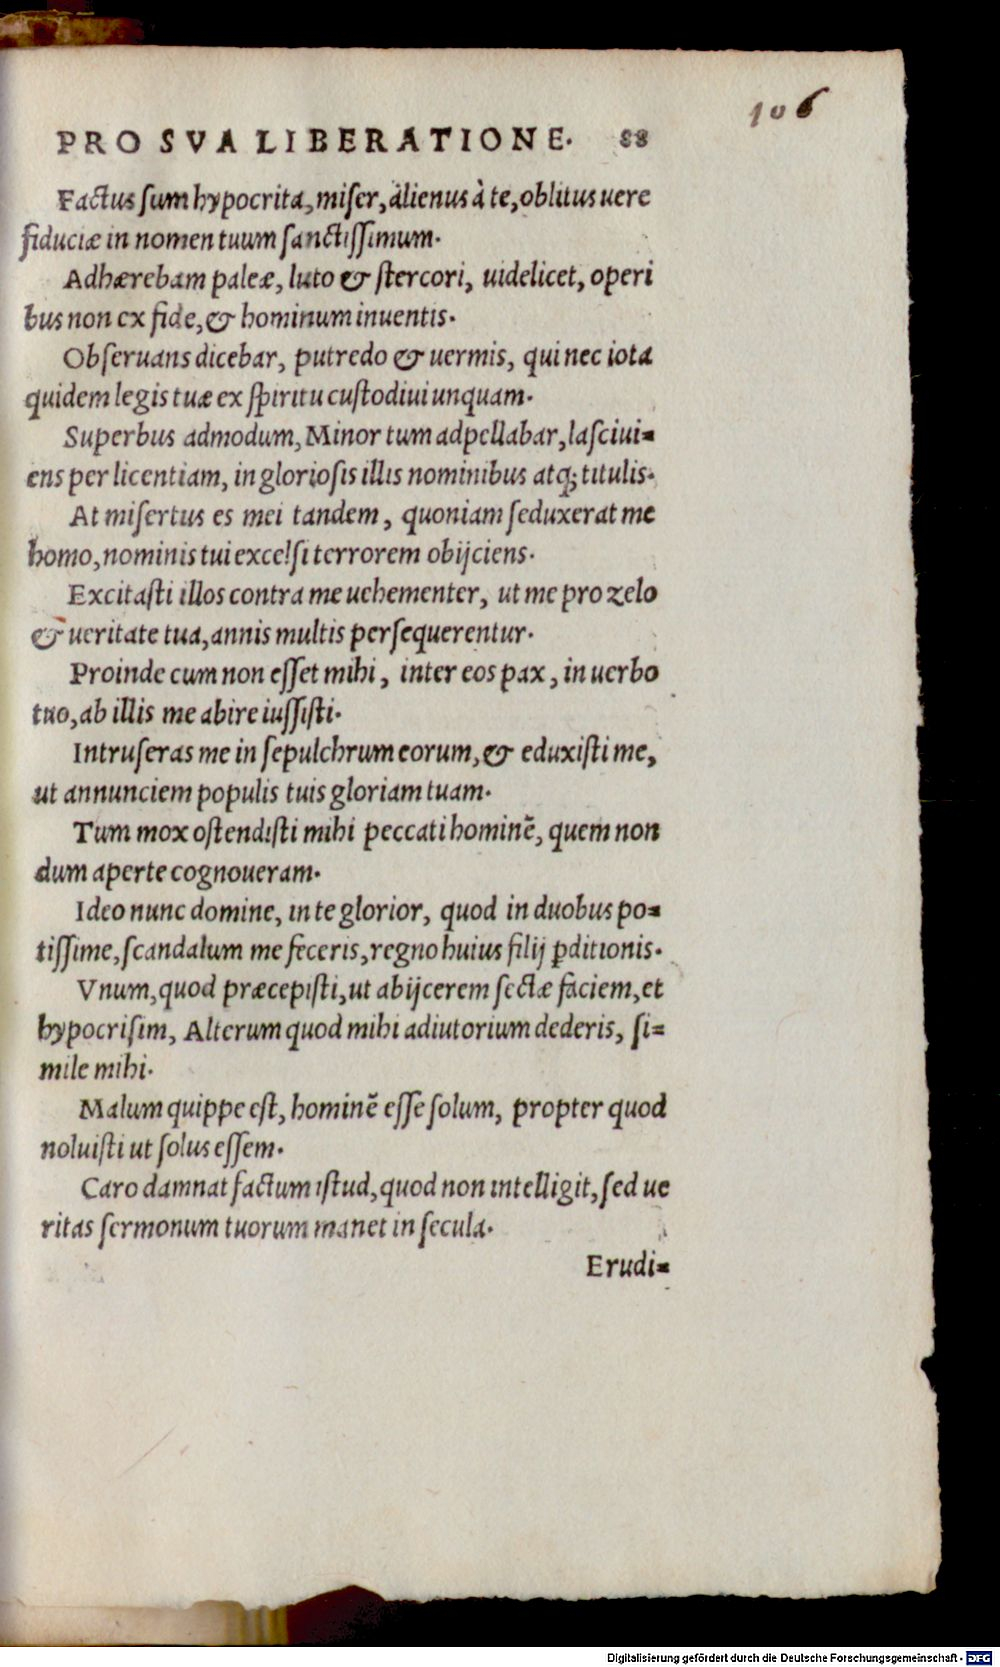 106
PRO SVA LIBERATIONE. 88
Factus sum hypocrita, miser, alienus à te, oblitus uere
fiduciæ in nomen tuum sanctissimum.
Adhærebam paleæ, luto & stercori, uidelicet, operi
bus non ex fide, & hominum inuentis.
Obseruans dicebar, putredo & uermis, qui nec iota
quidem legis tuæ ex spiritu custodiui unquam.
Superbus admodum, Minor tum adpellabar, lasciui-
ens per licentiam, in gloriosis illis nominibus atq; titulis.
At misertus es mei tandem, quoniam seduxerat me
homo, nominis tui excelsi terrorem obijciens.
Excitasti illos contra me uehementer, ut me pro zelo
& ueritate tua, annis multis persequerentur.
Proinde cum non esset mihi, inter eos pax, in uerbo
tuo, ab illis me abire iussisti.
Intruseras me in sepulchrum eorum, & eduxisti me,
ut annunciem populis tuis gloriam tuam.
Tum mox ostendisti mihi peccati hominē, quem non
dum aperte cognoueram.
Ideo nunc domine, in te glorior, quod in duobus po-
tissime, scandalum me feceris, regno huius filij ꝑditionis.
Vnum, quod præcepisti, ut abijcerem sectæ faciem, et
hypocrisim, Alterum quod mihi adiutorium dederis, si-
mile mihi.
Malum quippe est, hominē esse solum, propter quod
noluisti ut solus essem.
Caro damnat factum istud, quod non intelligit, sed ue
ritas sermonum tuorum manet in secula.
Erudi-
Digitalisierung gefördert durch die Deutsche Forschungsgemeinschaft - DFG